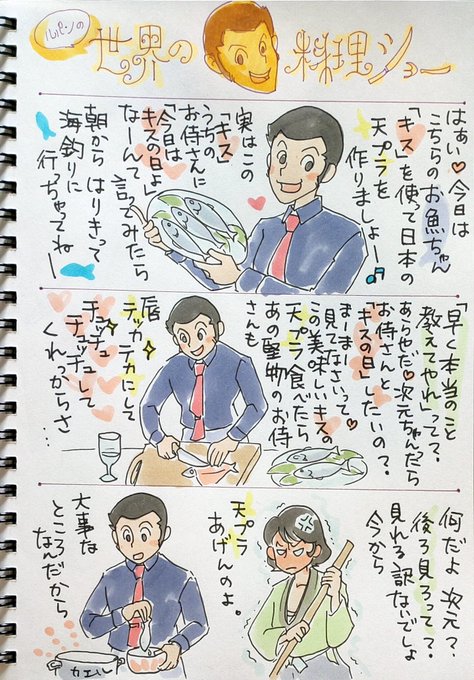 ルパンの
世界の
料理ショー
はぁい♥今日は
こちらのお魚ちゃん
「キス」を使って日本の
天プラを
作りましょー♪
実はこの
「キス」
うちの
お侍さんに
「今日は
キスの日よ」
なーんて言ってみたら
朝からはりきって
海釣りに
行っちゃってねー
「早く本当のこと
教えてやれ」って?
あらやだ♥次元ちゃんたら
お侍さんと
「キスの日」したいの?
まーまー
見て下さいって♥
この美味しいキスの
天プラ食べたら
あの堅物のお侍
さんも
唇
テッカテカにして
チュッ
チュッチュして
くれっからさ
…
何だよ次元?
後ろ見ろって?
見れる訳ないでしょ
今から
天プラ
あげんのよ。
大事な
ところ
なんだから
カエル